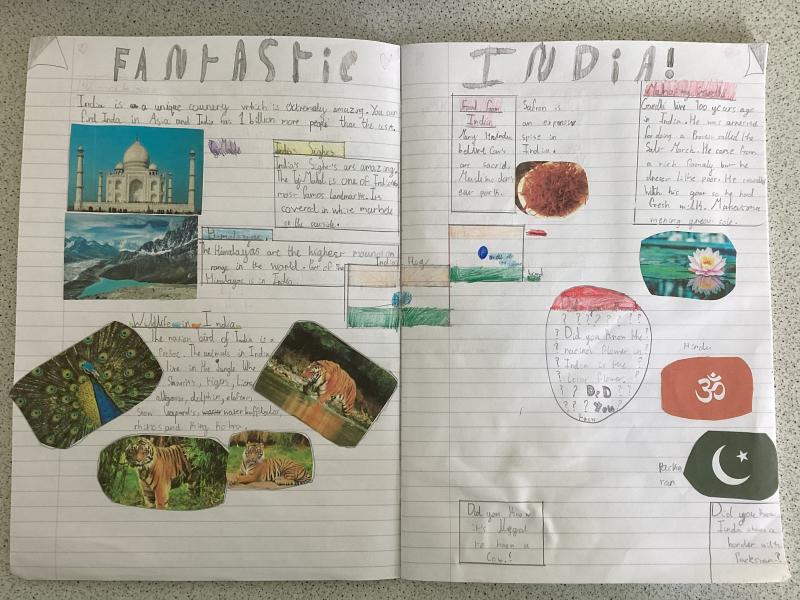 FANTASTIC INDIA!
India is a unique country which is extremely amazing. You can
find India in Asia and India has 1 billion more people than the u.s.a.
India's Sighes
India's Sighrs are amazing.
The Taj Mahal is one of India's
most famos landmarks. Its
covered in white marbele
on the ouside.
Himalayas
The Himalayas are the highest mountion
range in the world. Part of the
Himalayas is in India.
India's Flag
Wildlife in India
The nasion bird of India is a
The animals in India
live in the Jungle like
Tigers, Lions,
dolphins,
Snow Leopards, water buffaloes,
rhinos and King Kobra.
Food from
India
Many Hindus
believe Cow's
are sacred.
Muslims don't
ear pork.
Safron is
an expensive
spise in
India.
Gandhi live 100 years ago
in India. He was arrested
for doing a Protest called the
Salt March. He came from
a rich Family but he
dresses like poor. He
With his goat so he had
fresh milk.
mening great sole.
? ? ? ? ? ? ?
? Did you know the ?
nasinal flower in
India is the
Lotus flower.
? ? ? DiD ?
? ? ? You ?
know
Hindu
Packis
tan
Did you know
it's illegal
to harm a
Cow?
Did you know
India shares a
border with
Packistan?